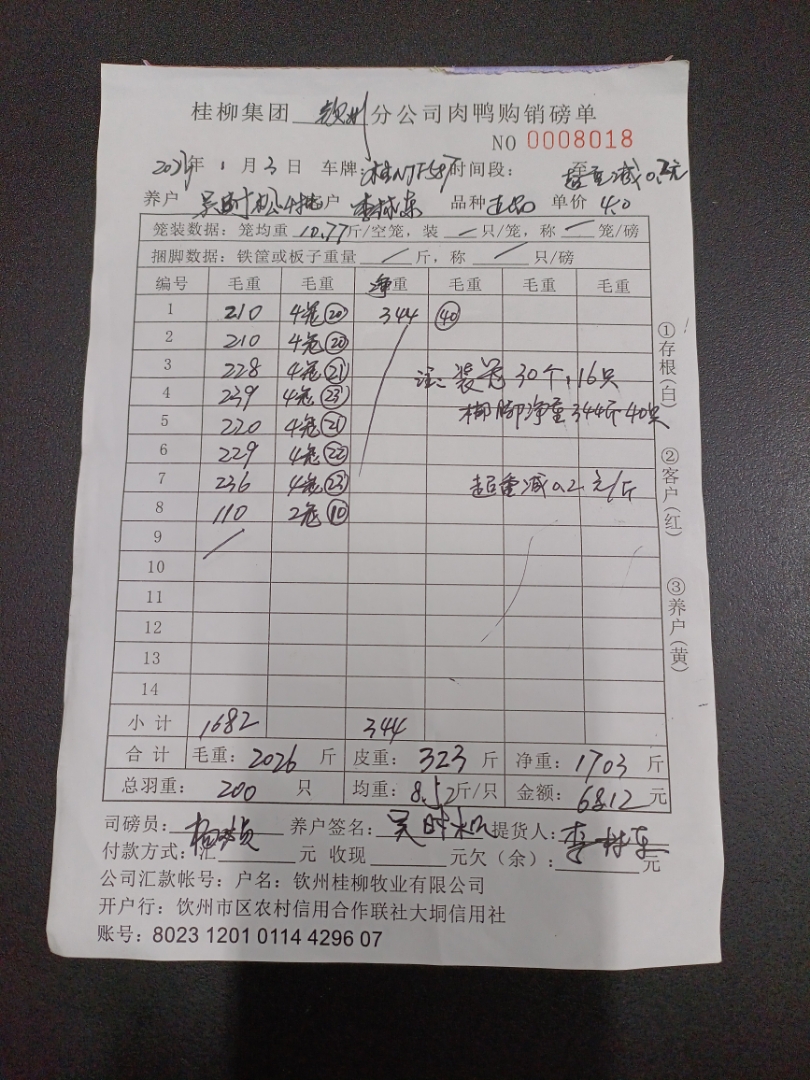 桂柳集团 钦州 分公司肉鸭购销磅单
NO 0008018
2023年 1 月 3 日 车牌: 时间段: 至
超重减0.2元
养户 吴时松 户 品种 单价 4.0
笼装数据: 笼均重 10.77 斤/空笼, 装 / 只/笼, 称 / 笼/磅
捆脚数据: 铁筐或板子重量 / 斤, 称 / 只/磅
编号 毛重 毛重 净重 毛重 毛重 毛重
1 210 4笼 20 344 40
2 210 4笼 20
3 228 4笼 21 注: 装笼30个,16只
4 239 4笼 23 捆脚净重344斤40只
5 220 4笼 21
6 229 4笼 22
7 236 4笼 23 超重减0.2元/斤
8 110 2笼 10
9
10
11
12
13
14
小计 1682 344
合计 毛重: 2026 斤 皮重: 323 斤 净重: 1703 斤
总羽重: 200 只 均重: 8.52斤/只 金额: 6812 元
司磅员: 养户签名: 吴时松 提货人: 李
付款方式: 汇 元 收现 元欠(余): 元
公司汇款帐号: 户名: 钦州桂柳牧业有限公司
开户行: 钦州市区农村信用合作联社大垌信用社
账号: 8023 1201 0114 4296 07
①存根(白)
②客户(红)
③养户(黄)